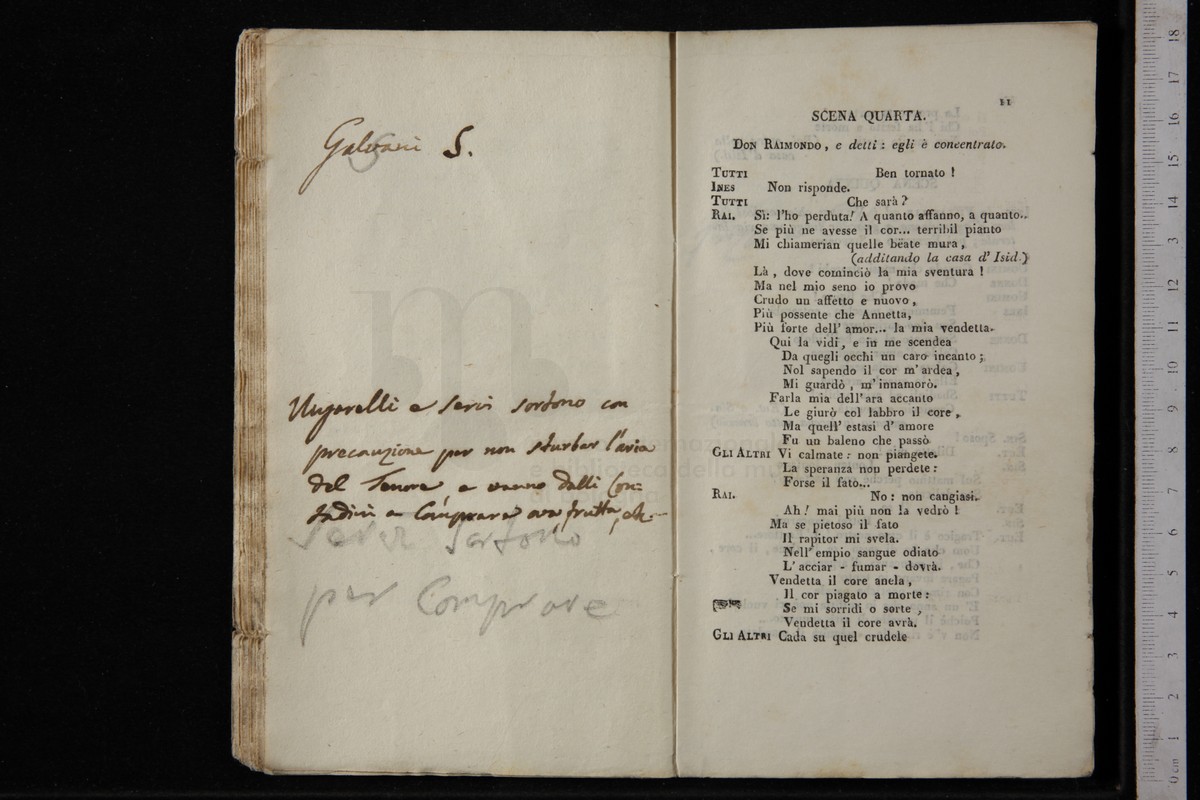 Galvani S.
e Servi sortono con
precauzione per non sturbar l'aria
del Tenore, e vanno dalli Con=
tadini a Comprare ova, frutta,
Servi Sortono
per Comprare
11
SCENA QUARTA.
DON RAIMONDO, e detti: egli è concentrato.
TUTTI Ben tornato!
INES Non risponde.
TUTTI Che sarà?
RAI. Sì: l'ho perduta! A quanto affanno, a quanto..
Se più ne avesse il cor... terribil pianto
Mi chiamerian quelle bëate mura,
(additando la casa d' Isid.)
Là, dove cominciò la mia sventura!
Ma nel mio seno io provo
Crudo un affetto e nuovo,
Più possente che Annetta,
Più forte dell' amor... la mia vendetta.
Qui la vidi, e in me scendea
Da quegli occhi un caro incanto;
Nol sapendo il cor m' ardea,
Mi guardò, m' innamorò.
Farla mia dell' ara accanto
Le giurò col labbro il core,
Ma quell' estasi d' amore
Fu un baleno che passò
GLI ALTRI Vi calmate: non piangete.
La speranza non perdete:
Forse il fato...
RAI. No: non cangiasi.
Ah! mai più non la vedrò!
Ma se pietoso il fato
Il rapitor mi svela.
Nell' empio sangue odiato
L' acciar - fumar - dovrà.
Vendetta il core anela,
Il cor piagato a morte:
Se mi sorridi o sorte,
Vendetta il core avrà.
GLI ALTRI Cada su quel crudele